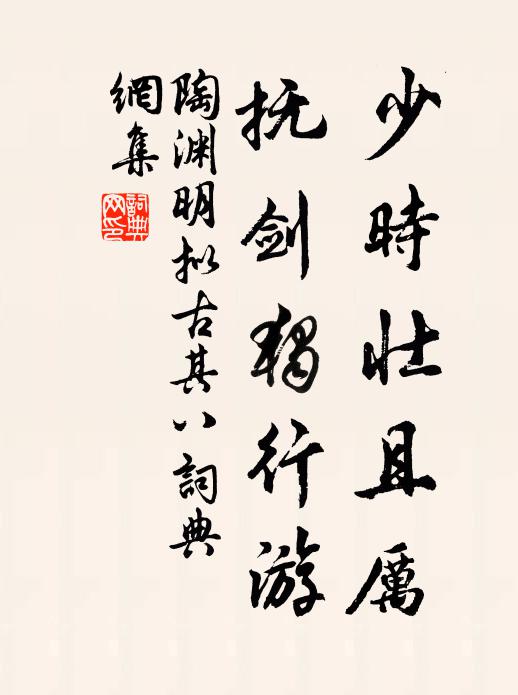 少時壮且厲
抚剑獨行游
陶渊明拟古其八詞典
網集
詞典
网印